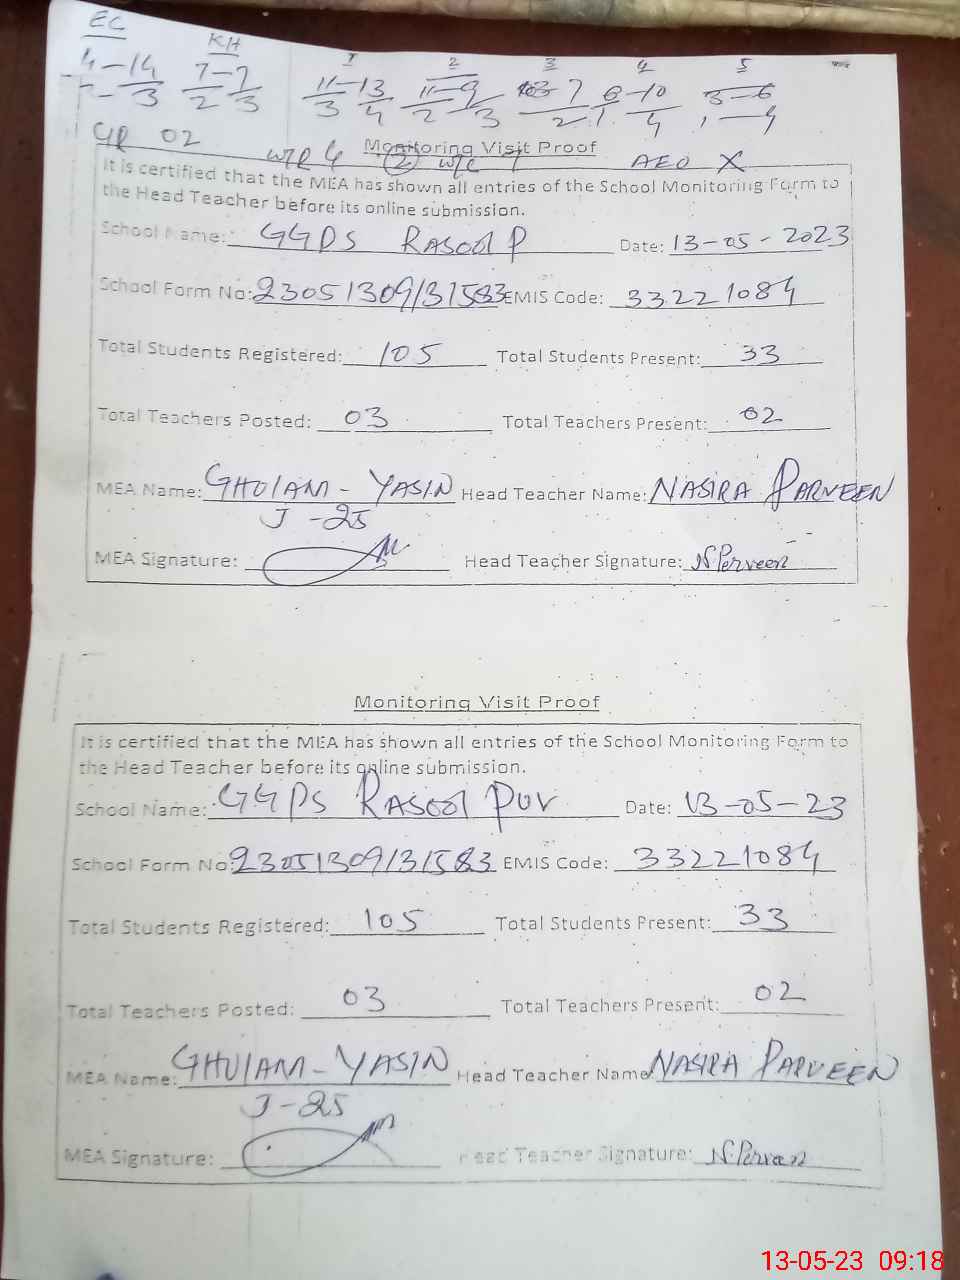 EC KH 1 2 3 4 5
4-14 7-7 11-13 11-9 7 6-10 3-6
3 2 3 3 4 2 3 2 1 4 1 4
GR 02
Monitoring Visit Proof
W/R 4 2 W/C 1 AEO X
It is certified that the MEA has shown all entries of the School Monitoring Form to
the Head Teacher before its online submission.
School Name: GGPS RASOOL P Date: 13-05-2023
School Form No: 23051309131583 EMIS Code: 33221084
Total Students Registered: 105 Total Students Present: 33
Total Teachers Posted: 03 Total Teachers Present: 02
MEA Name: GHULAM - YASIN Head Teacher Name: NASIRA PARVEEN
J-25
MEA Signature: Head Teacher Signature: N.Perveen
Monitoring Visit Proof
It is certified that the MEA has shown all entries of the School Monitoring Form to
the Head Teacher before its online submission.
School Name: GGPS RASOOL PUR Date: 13-05-23
School Form No: 23051309131583 EMIS Code: 33221084
Total Students Registered: 105 Total Students Present: 33
Total Teachers Posted: 03 Total Teachers Present: 02
MEA Name: GHULAM - YASIN Head Teacher Name NASIRA PARVEEN
J-25
MEA Signature: Head Teacher Signature: N.Perveen
13-05-23 09:18